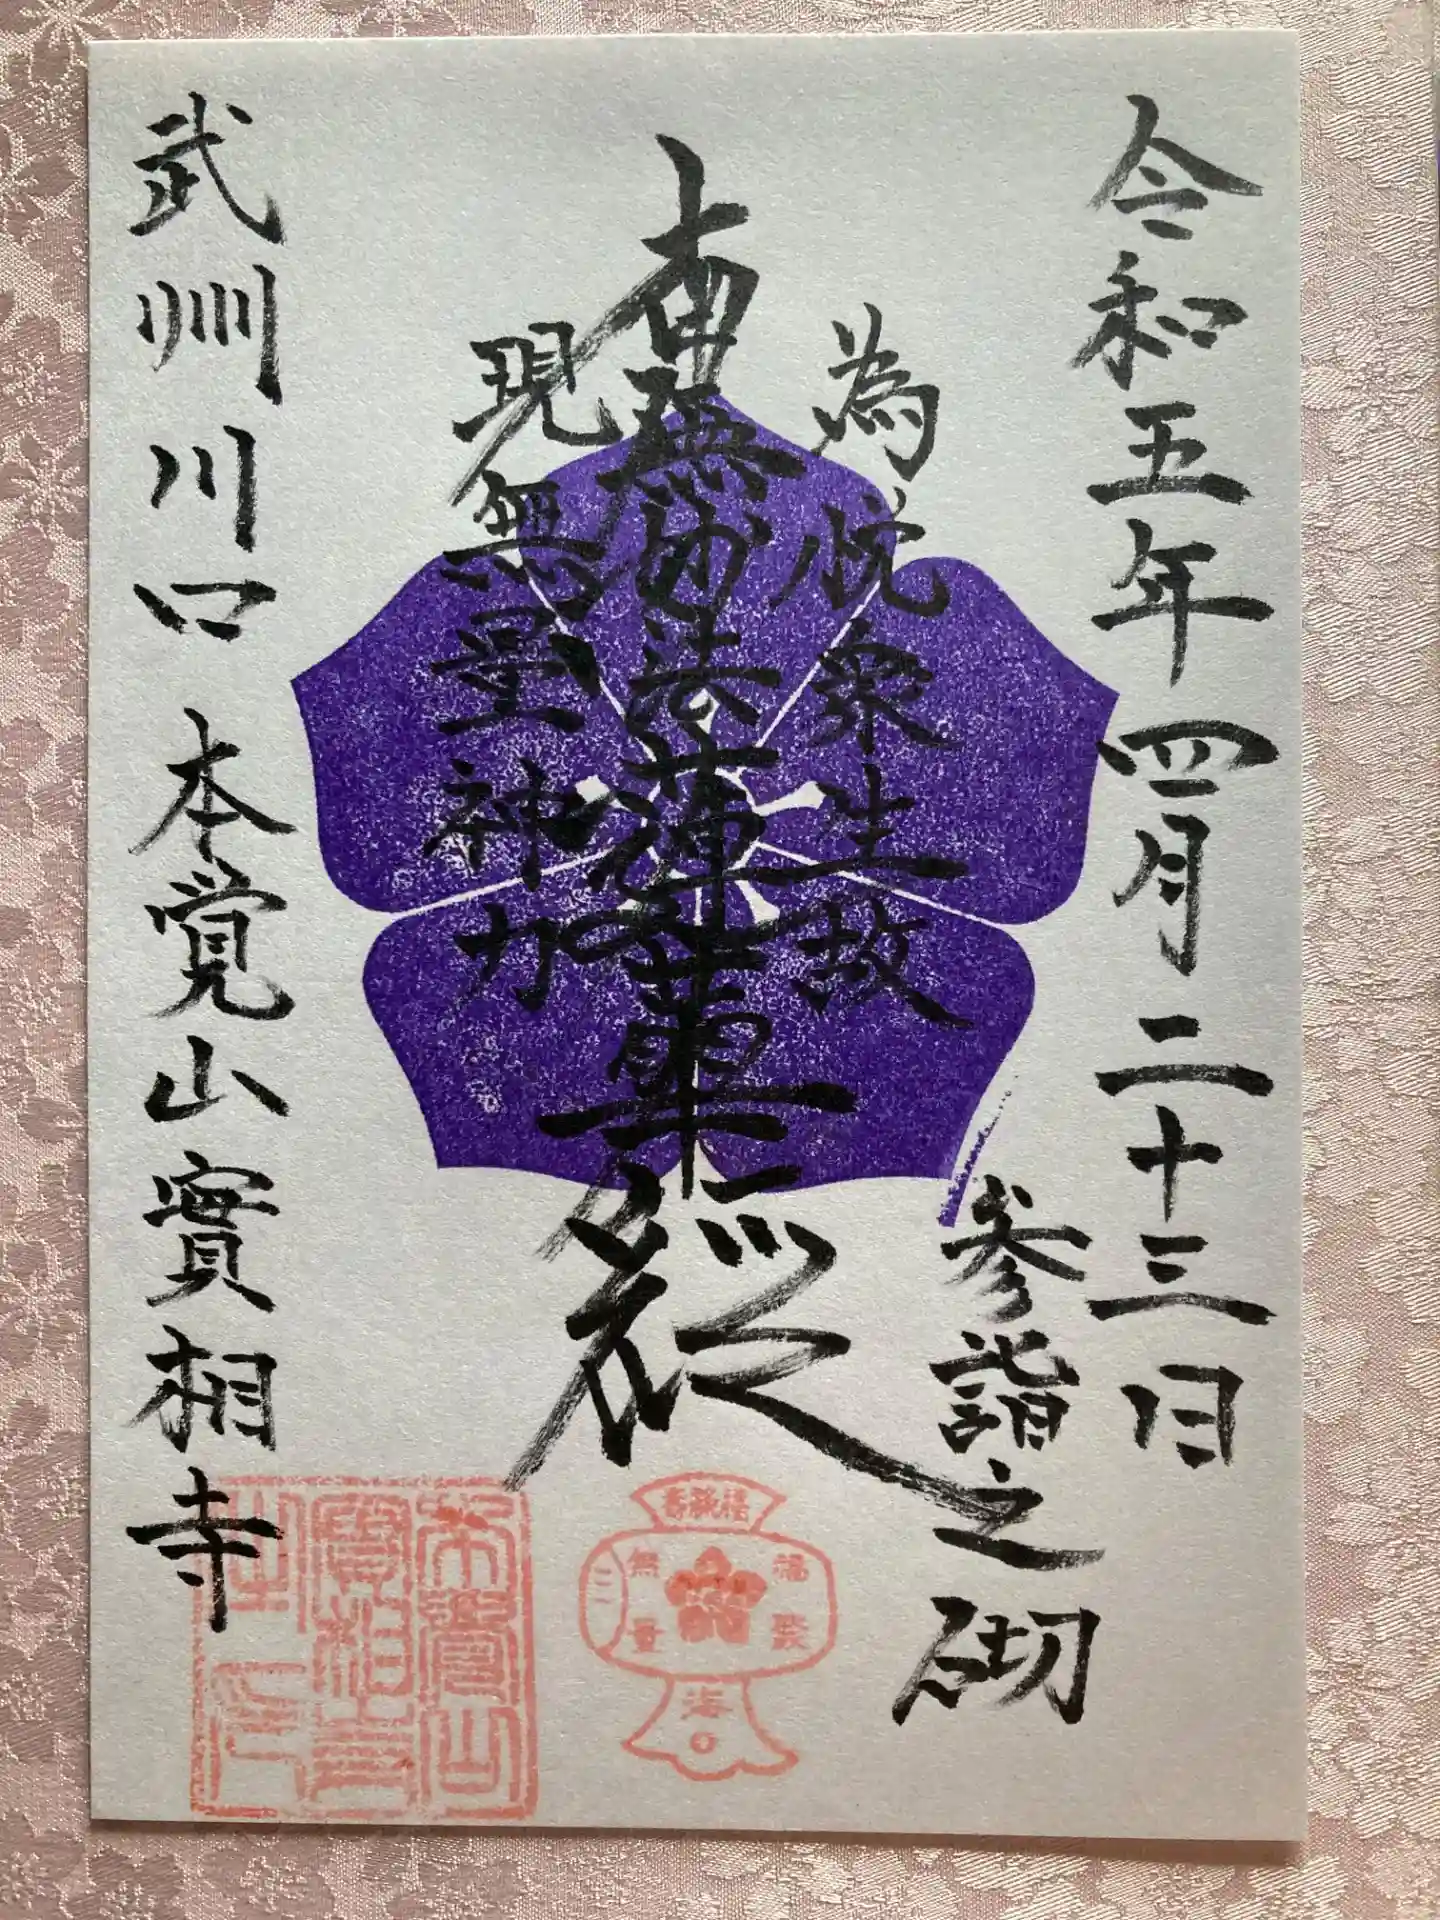 令和五年四月二十三日
参詣之砌
為悦衆生故
南無妙法蓮華経
現無量神力
武州川口本覚山實相寺
福聚
無量
本覺山
實相寺
之印